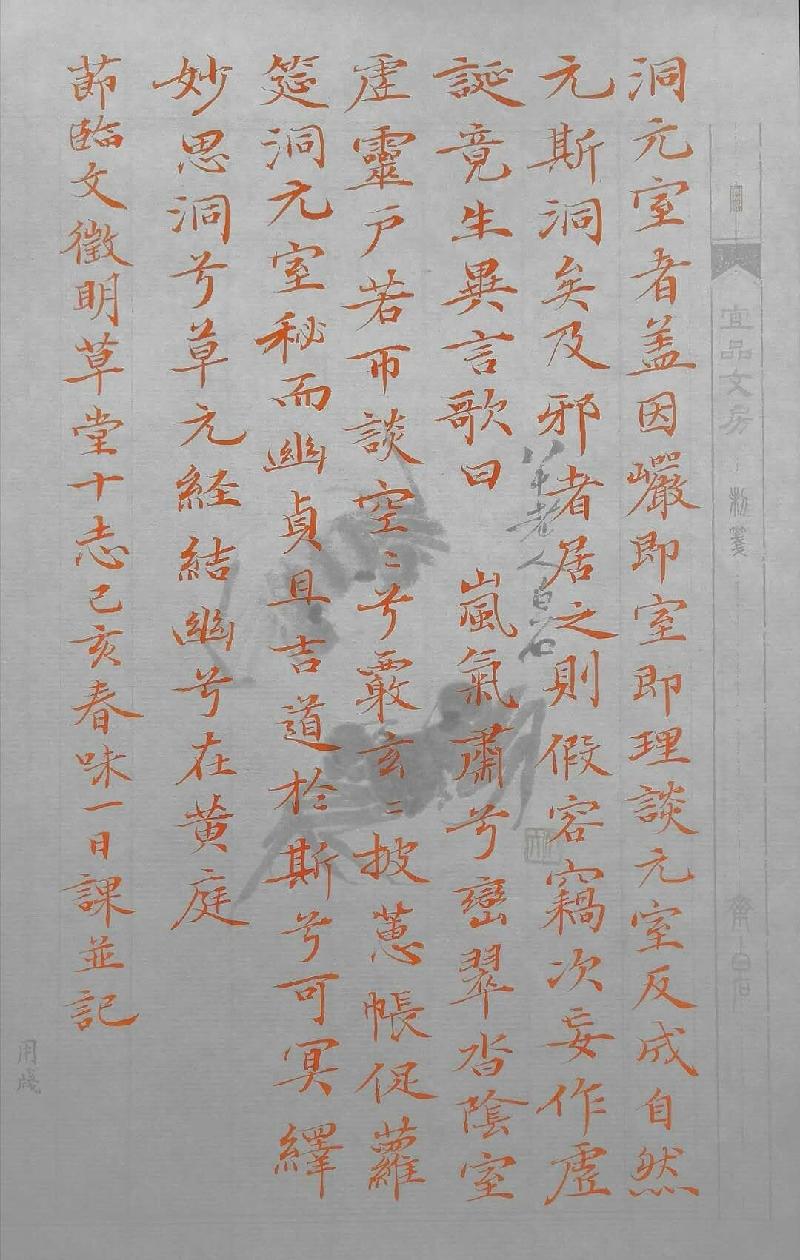 洞元室者蓋因巖即室即理談元室反成自然
元斯洞矣及邪者居之則假容竊次妄作虛
誕竟生異言歌曰　嵐氣肅兮巒翠沓陰室
虛靈戶若而談空〻兮覈玄〻披蕙帳促蘿
筵洞元室秘而幽貞且吉道於斯兮可冥繹
妙思洞兮草元經結幽兮在黃庭
節臨文徵明草堂十志己亥春味一日課並記
宜品文房
粉箋
齊白石
用箋
白石